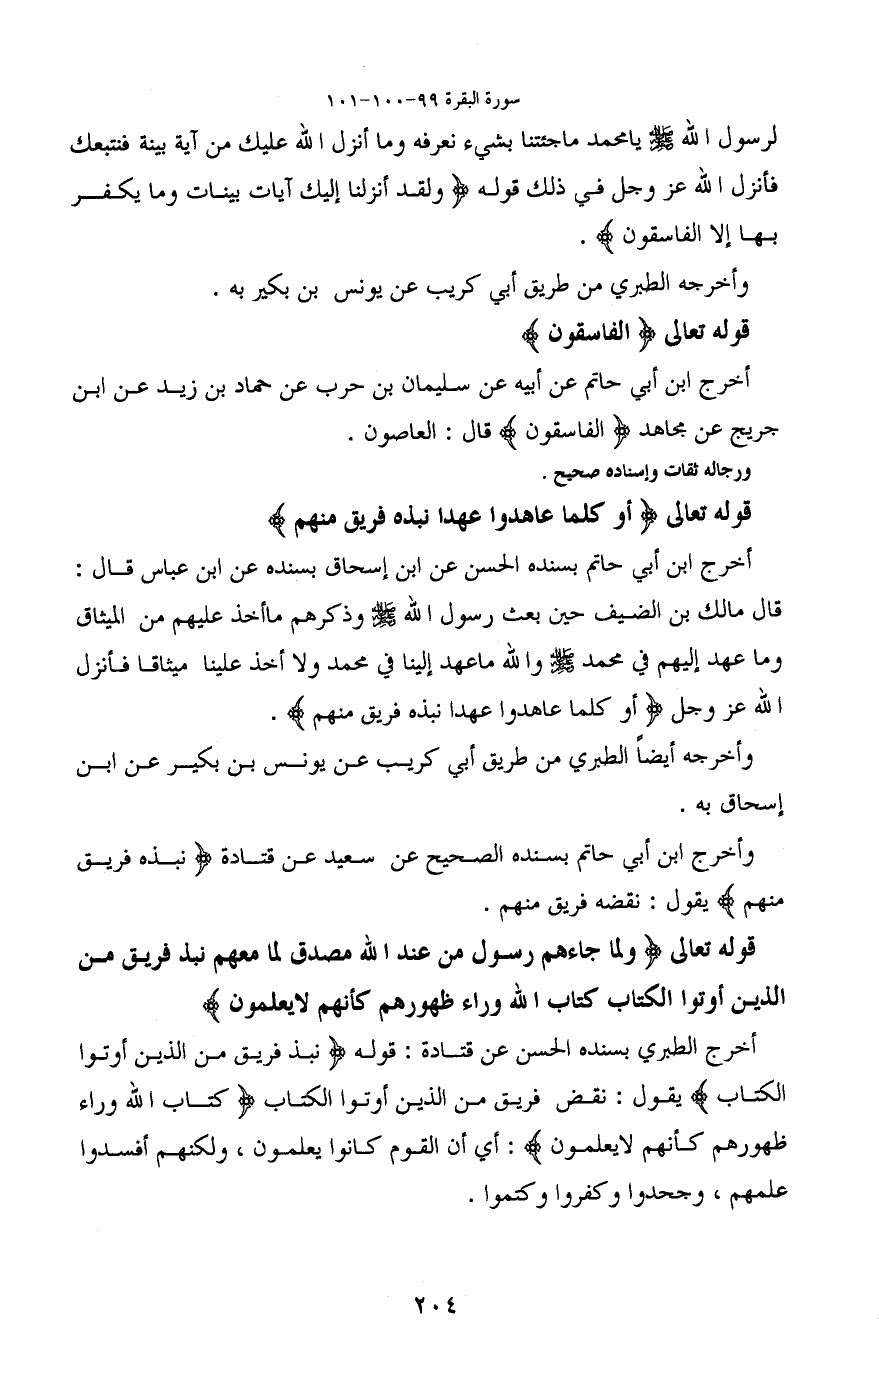 سورة البقرة ٩٩-١٠٠-١٠١
لرسول الله ﷺ يامحمد ماجئتنا بشيء نعرفه وما أنزل الله عليك من آية بينة فنتبعك
فأنزل الله عز وجل في ذلك قوله ﴿ ولقد أنزلنا إليك آيات بينات وما يكفر
بها إلا الفاسقون ﴾ .
وأخرجه الطبري من طريق أبي كريب عن يونس بن بكير به .
قوله تعالى ﴿ الفاسقون ﴾
أخرج ابن أبي حاتم عن أبيه عن سليمان بن حرب عن حماد بن زيد عن ابن
جريج عن مجاهد ﴿ الفاسقون ﴾ قال : العاصون .
ورجاله ثقات وإسناده صحيح .
قوله تعالى ﴿ أو كلما عاهدوا عهدا نبذه فريق منهم ﴾
أخرج ابن أبي حاتم بسنده الحسن عن ابن إسحاق بسنده عن ابن عباس قال :
قال مالك بن الضيف حين بعث رسول الله ﷺ وذكرهم ماأخذ عليهم من الميثاق
وما عهد إليهم في محمد ﷺ والله ماعهد إلينا في محمد ولا أخذ علينا ميثاقا فأنزل
الله عز وجل ﴿ أو كلما عاهدوا عهدا نبذه فريق منهم ﴾ .
وأخرجه أيضاً الطبري من طريق أبي كريب عن يونس بن بكير عن ابن
إسحاق به .
وأخرج ابن أبي حاتم بسنده الصحيح عن سعيد عن قتادة ﴿ نبذه فريق
منهم ﴾ يقول : نقضه فريق منهم .
قوله تعالى ﴿ ولما جاءهم رسول من عند الله مصدق لما معهم نبذ فريق من
الذين أوتوا الكتاب كتاب الله وراء ظهورهم كأنهم لايعلمون ﴾
أخرج الطبري بسنده الحسن عن قتادة : قوله ﴿ نبذ فريق من الذين أوتوا
الكتاب ﴾ يقول : نقض فريق من الذين أوتوا الكتاب ﴿ كتاب الله وراء
ظهورهم كأنهم لايعلمون ﴾ : أي أن القوم كانوا يعلمون ، ولكنهم أفسدوا
علمهم ، وجحدوا وكفروا وكتموا .
٢٠٤